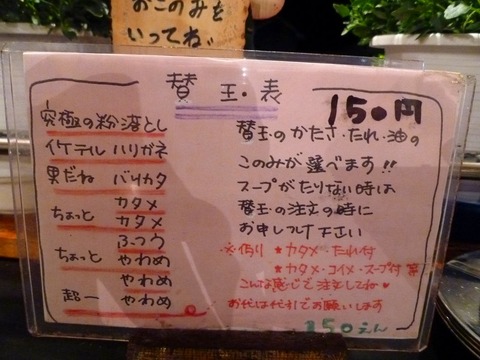 おこのみを
いってね。
替 玉・表
150円
究極の粉落とし
イケテル ハリガネ
男だね バリカタ
カタメ
ちょっと カタメ
ふつう
ちょっと やわめ
やわめ
超ー やわめ
替玉のかたさ・たれ・油の
このみが選べます!!
スープがたりない時は
替玉の注文の時に
お申しつけ下さい
※例り ★カタメ・たれ付
★カタメ・コイメ・スープ付 等
こんな感じで注文してね♥
お代は代引でお願いします
150えん